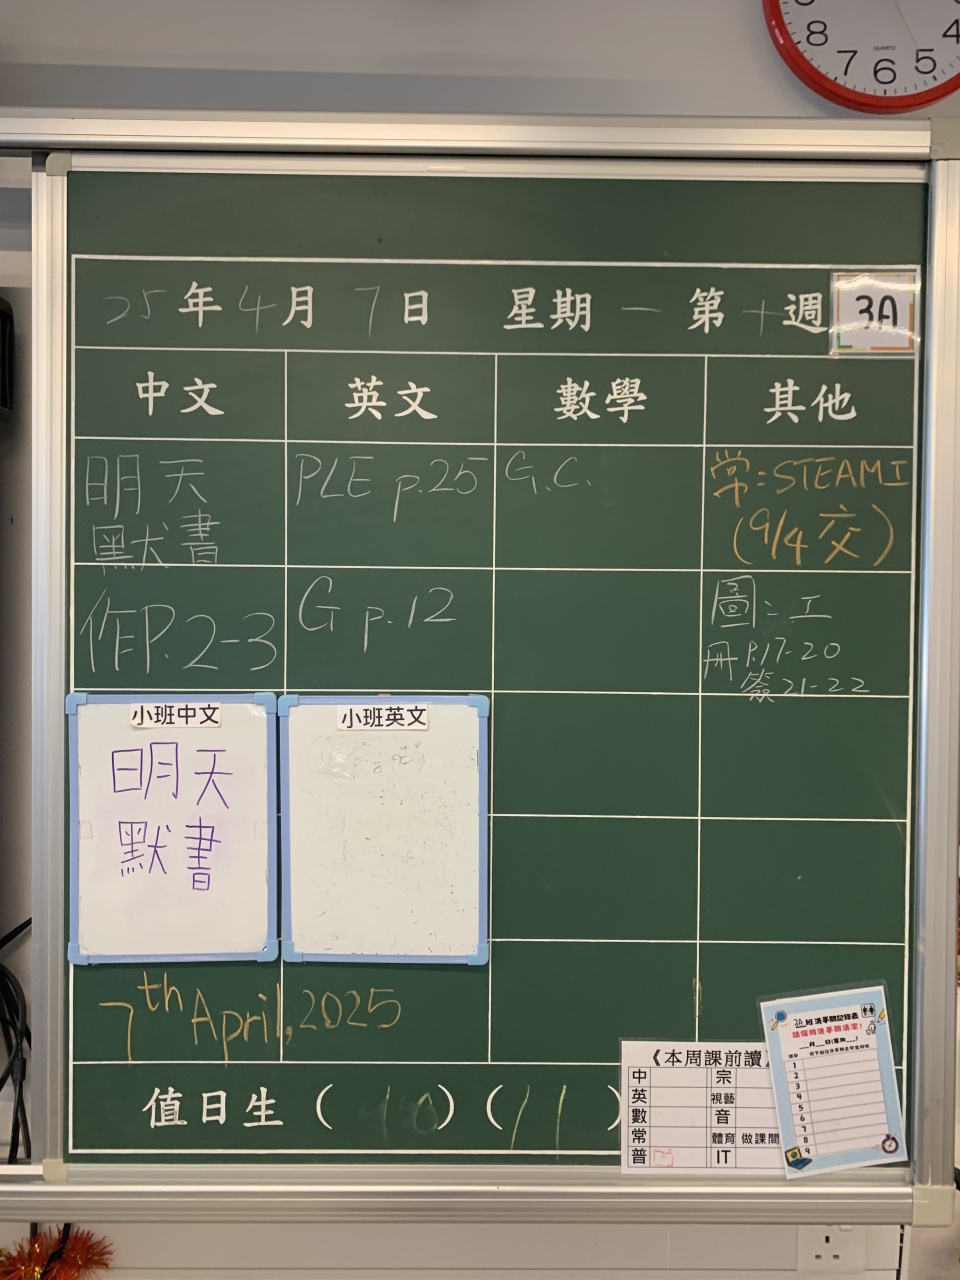 8 7 6 5 4
QUARTZ
25年4月7日 星期一第十週 3A
中文 英文 數學 其他
明天
默書
PLE p.25
G.C.
常:STEAM工
(9/4交)
作P.2-3
G p.12
圖:工
冊P.17-20
簽21-22
小班中文
明天
默書
小班英文
7th April, 2025
值日生(10)(11)
《本周課前讀》
中 宗
英 視藝
數 音
常 體育 做課間
普 IT
3A班清事顧記錄表
___月___日(星期___)
1
2
3
4
5
6
7
8
9